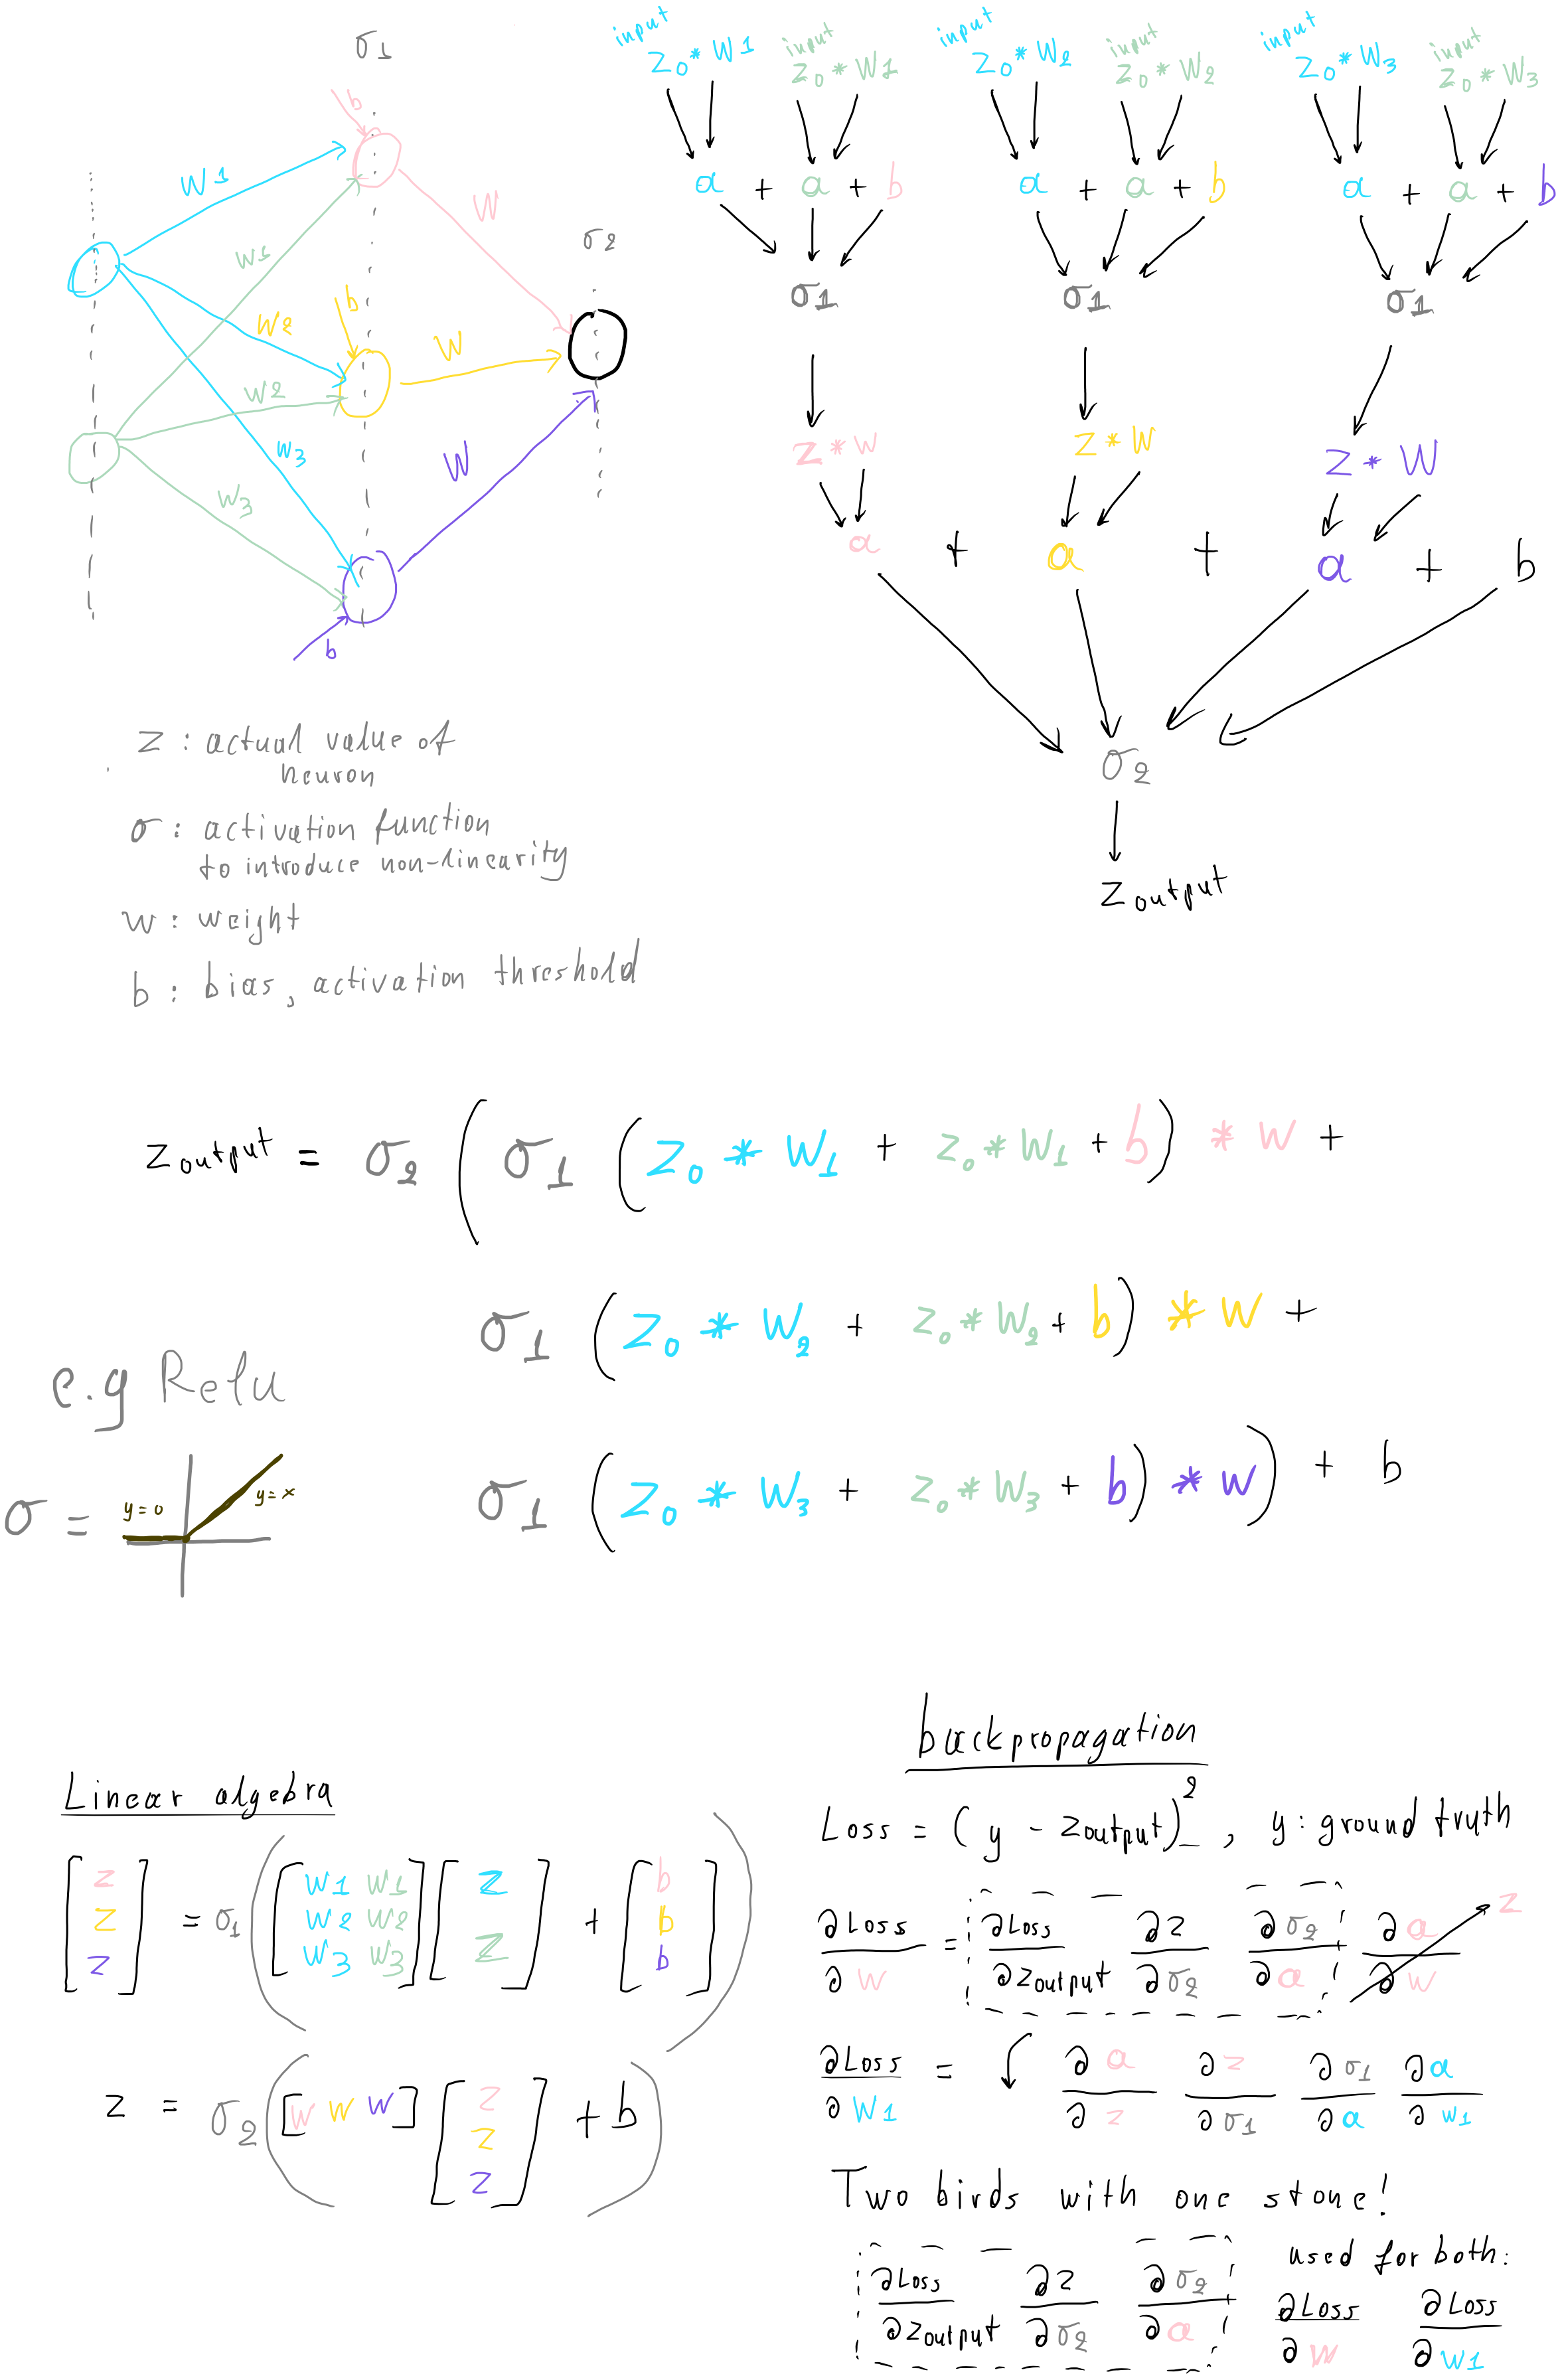 σ1
b
W1
W
W1
σ2
b
W2
W
W2
W3
W
W3
b
input input input input input input
Z0 * W1 Z0 * W1 Z0 * W2 Z0 * W2 Z0 * W3 Z0 * W3
a + a + b a + a + b a + a + b
σ1 σ1 σ1
z * w z * w z * W
a + a + a + b
σ2
Zoutput
Z : actual value of
neuron
σ : activation function
to introduce non-linearity
W : weight
b : bias, activation threshold
Zoutput = σ2 ( σ1 ( Z0 * W1 + Z0 * W1 + b ) * W +
σ1 ( Z0 * W2 + Z0 * W2 + b ) * W +
e.g Relu
σ1 ( Z0 * W3 + Z0 * W3 + b ) * W ) + b
σ =
y=0
y=x
Linear algebra
[ z z z ] = σ1 ( [ W1 W1 W2 W2 W3 W3 ] [ z z ] + [ b b b ] )
z = σ2 ( [ w w w ] [ z z z ] + b )
backpropagation
Loss = ( y - Zoutput )2 , y: ground truth
∂Loss/∂w = ∂Loss/∂Zoutput ∂z/∂σ2 ∂σ2/∂a ∂a/∂w z
∂Loss/∂W1 = ∂a/∂z ∂z/∂σ1 ∂σ1/∂a ∂a/∂W1
Two birds with one stone!
∂Loss/∂Zoutput ∂z/∂σ2 ∂σ2/∂a
used for both:
∂Loss/∂w ∂Loss/∂W1